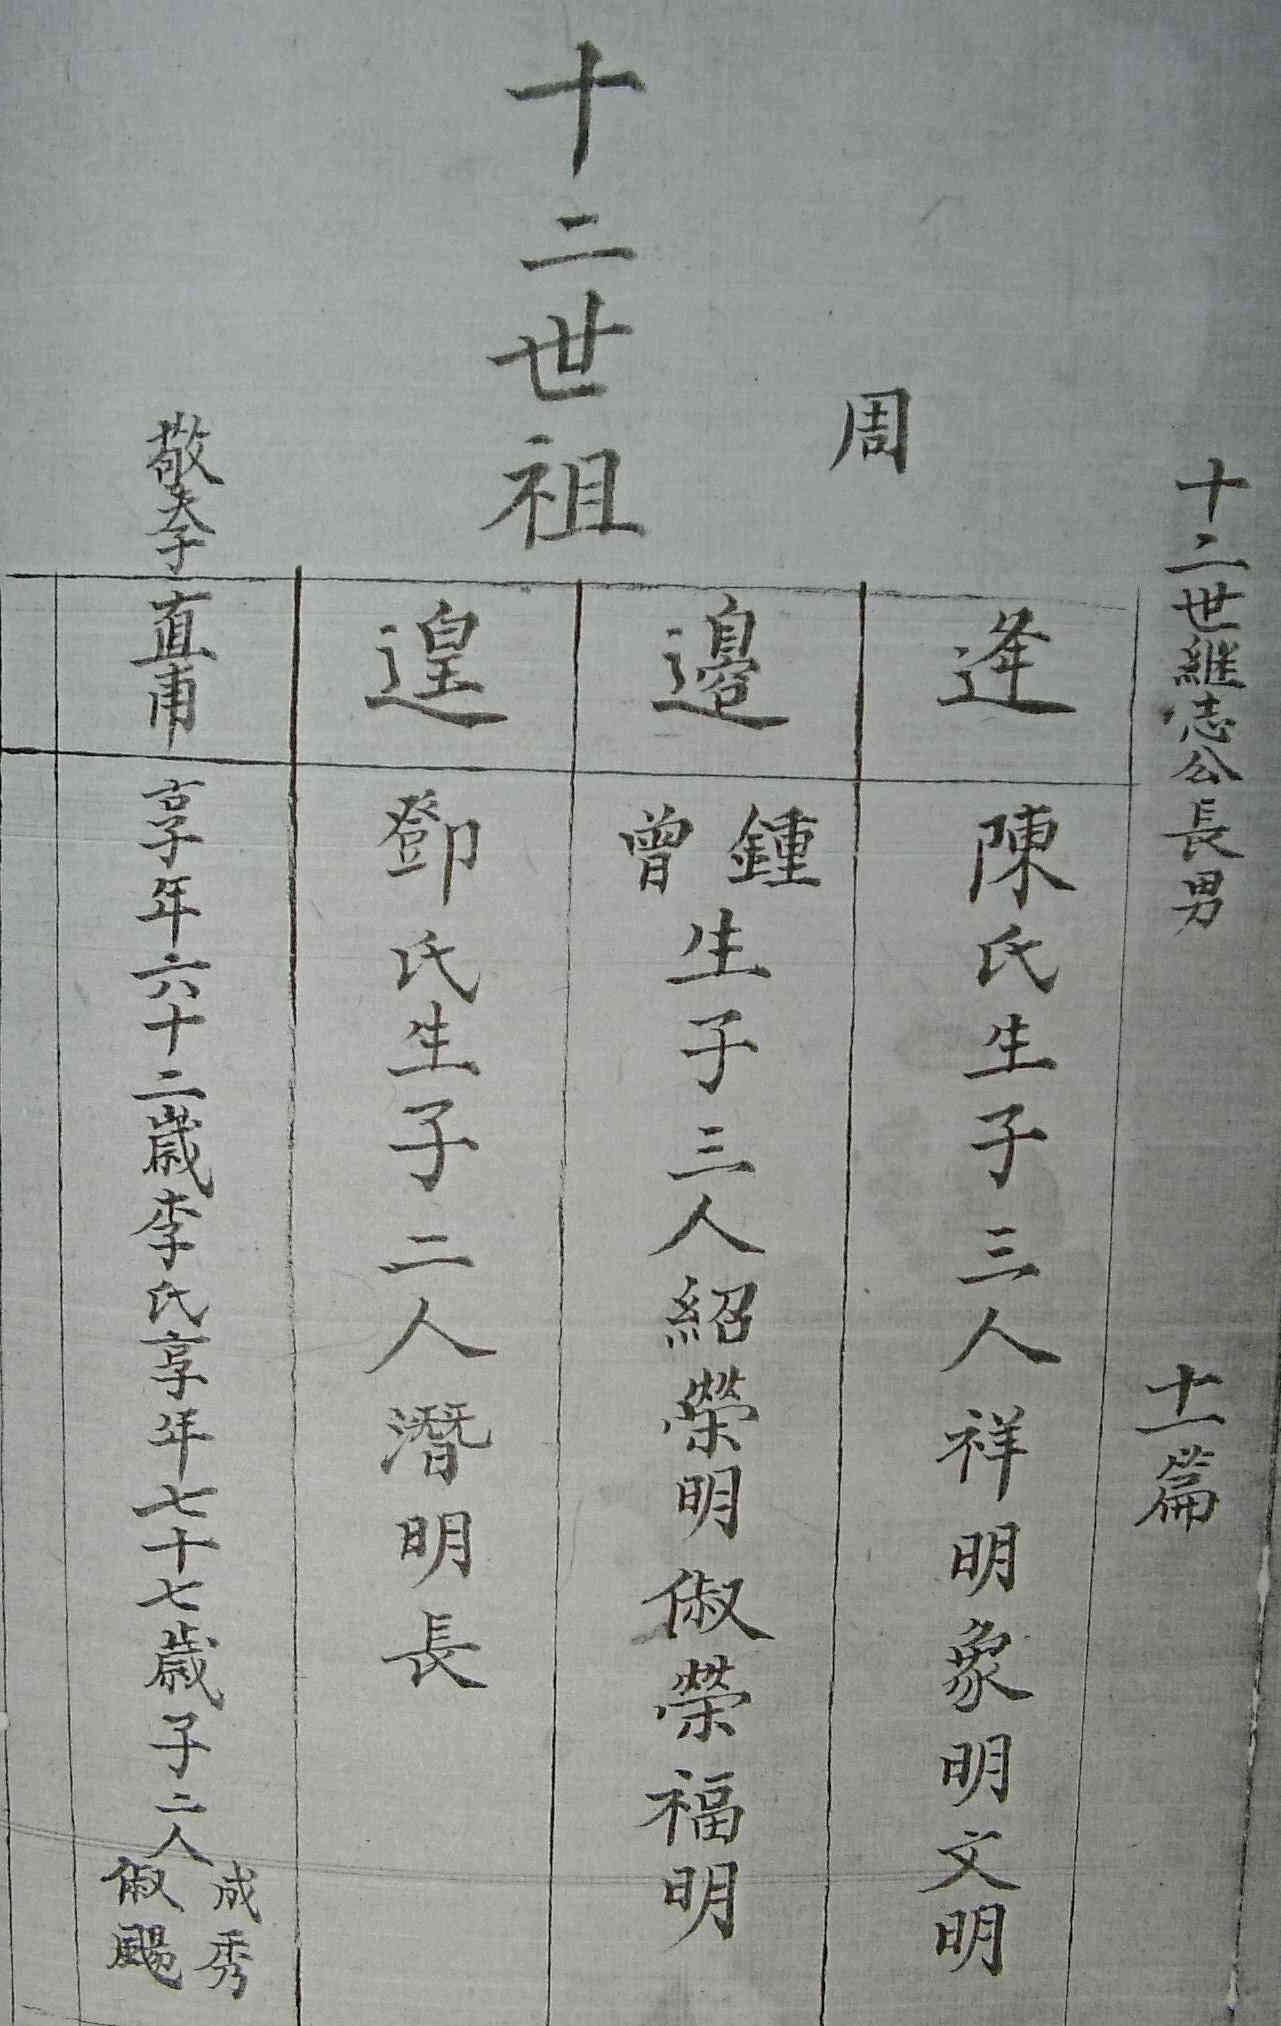 十二世繼志公長男
十一篇
周
十二世祖
逢
陳氏生子三人祥明象明文明
邊
鍾
曾
生子三人紹榮明俶榮福明
遑
鄧氏生子二人潛明長
敬季直甫
享年六十二歲李氏享年七十七歲子二人
成秀
俶颺